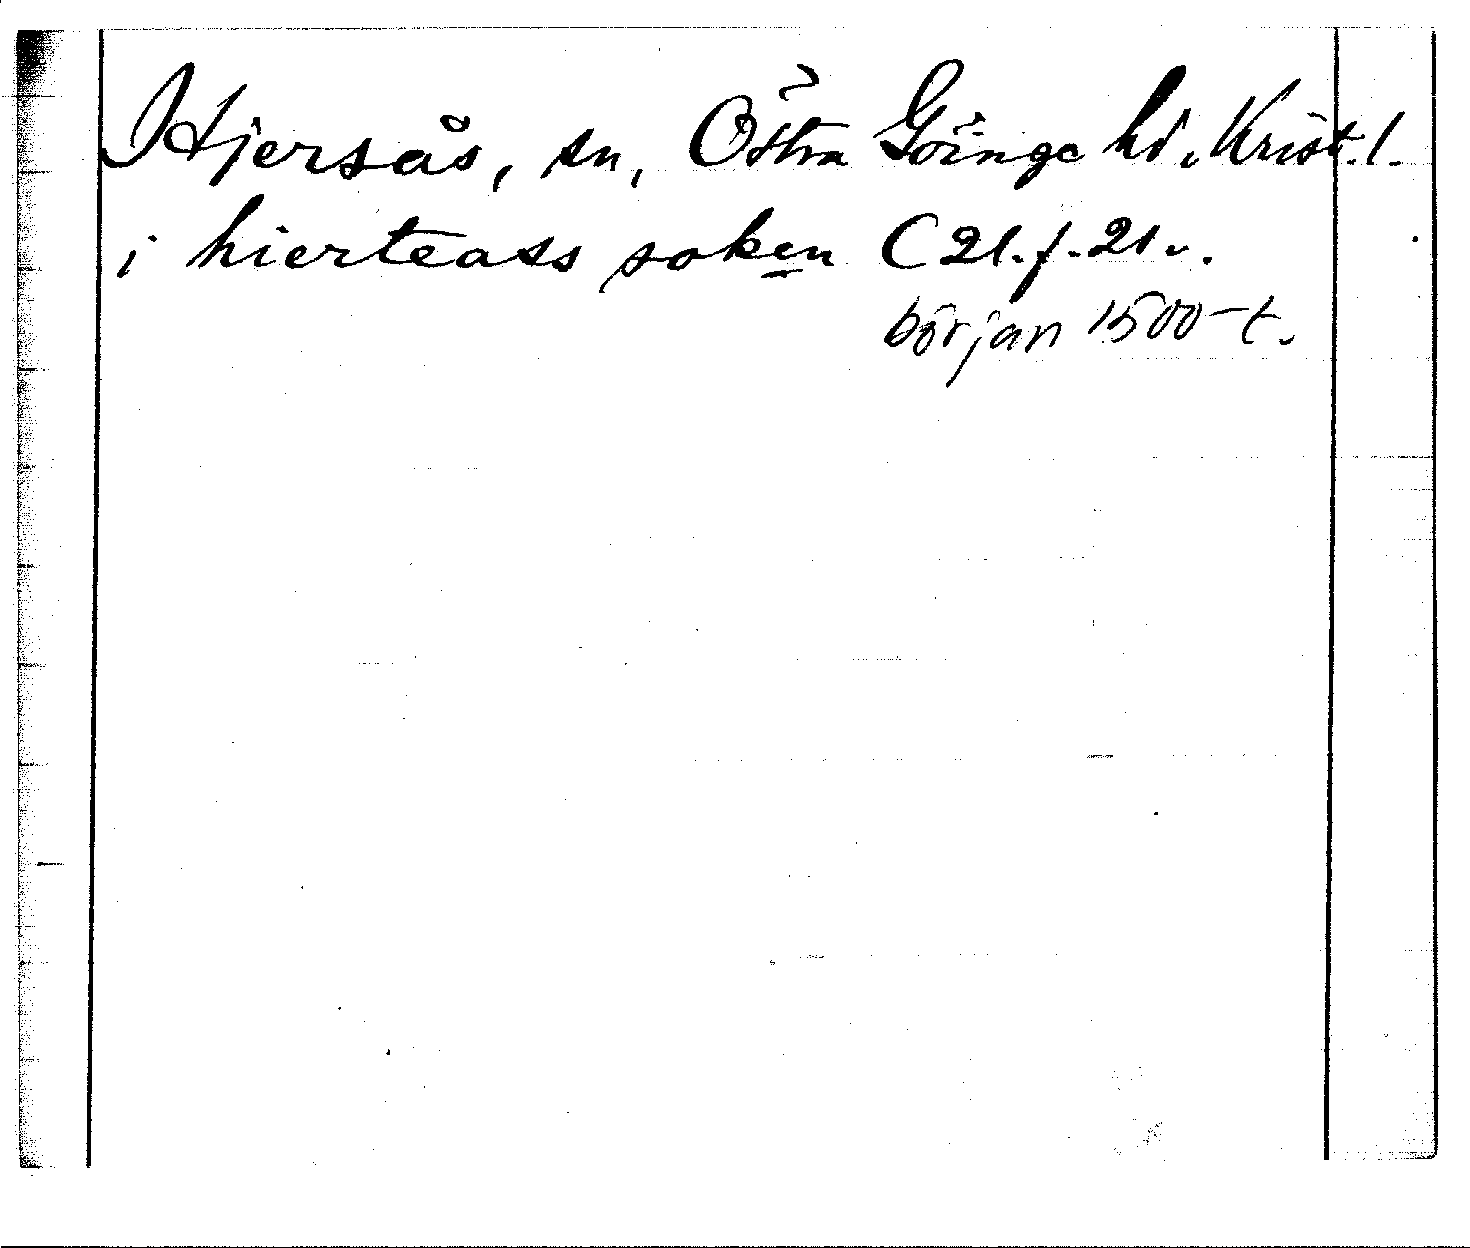 Hjersås, sn, Östra Göinge hd, Krist. l.
i hierteass soken C 21. f. 21 v.
början 1500-t.